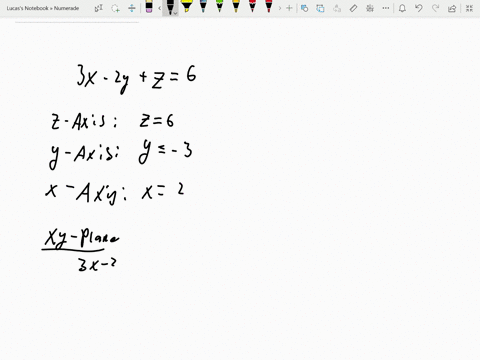 Lucas's Notebook » Numerade
3x - 2y + z = 6
z-Axis: z = 6
y-Axis: y = -3
x-Axis: x = 2
xy-Plane
3x-2